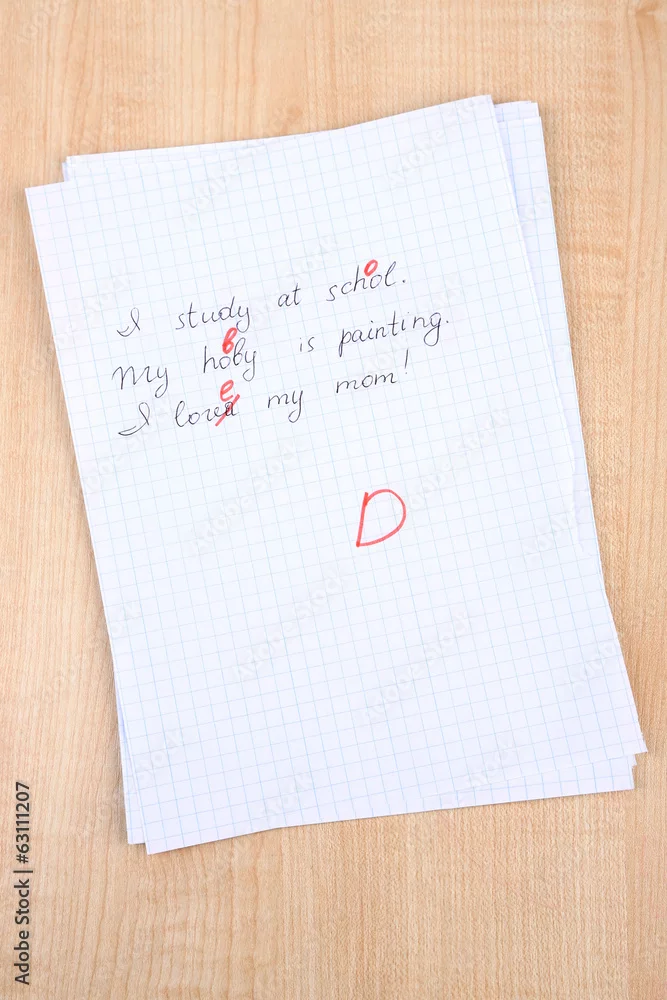 I study at schol.
o
My hoby is painting.
b
I lova my mom!
e
D
Adobe Stock | #63111207